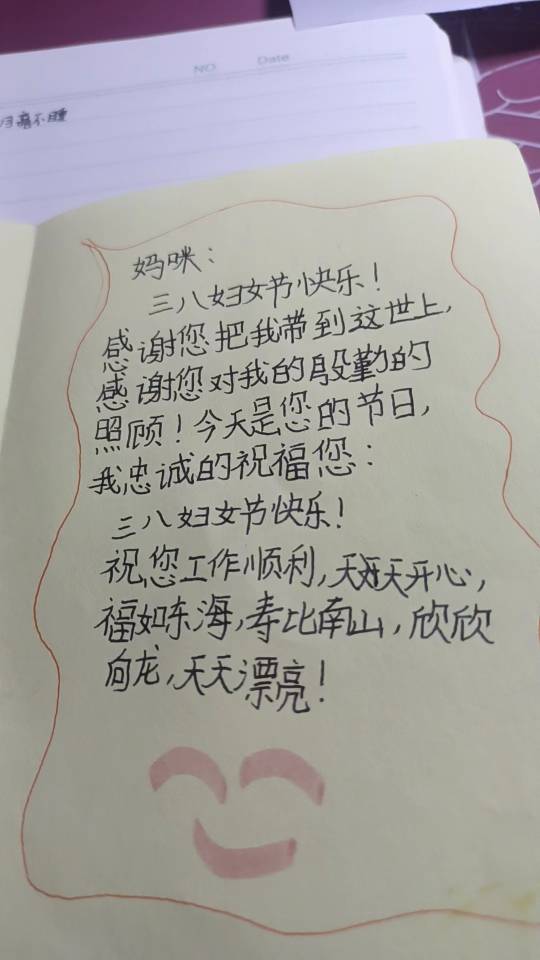 NO Date
妈咪：
三八妇女节快乐！
感谢您把我带到这世上，
感谢您对我的殷勤的
照顾！今天是您的节日，
我忠诚的祝福您：
三八妇女节快乐！
祝您工作顺利，天天开心，
福如东海，寿比南山，欣欣
向龙，天天漂亮！